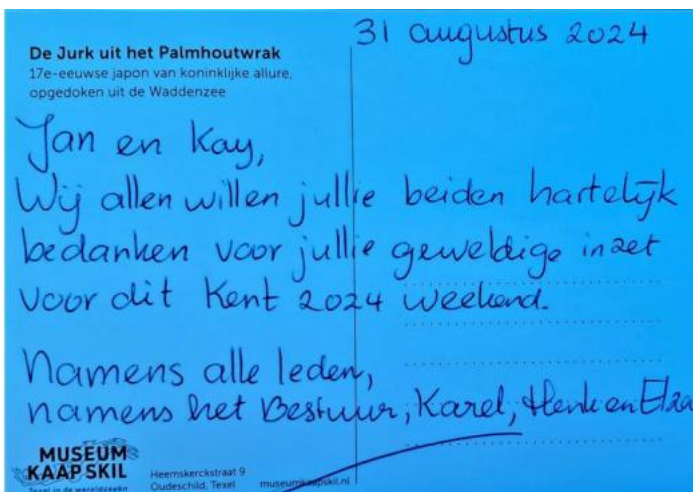 31 augustus 2024
De Jurk uit het Palmhoutwrak
17e-eeuwse japon van koninklijke allure,
opgedoken uit de Waddenzee
Jan en Kay,
Wij allen willen jullie beiden hartelijk
bedanken voor jullie geweldige inzet
voor dit Kent 2024 weekend.
Namens alle leden,
namens het Bestuur, Karel, Henk en Elza
MUSEUM
KAAP SKIL
Texel in de wereldzeeën
Heemskerckstraat 9
Oudeschild, Texel
museumkaapskil.nl